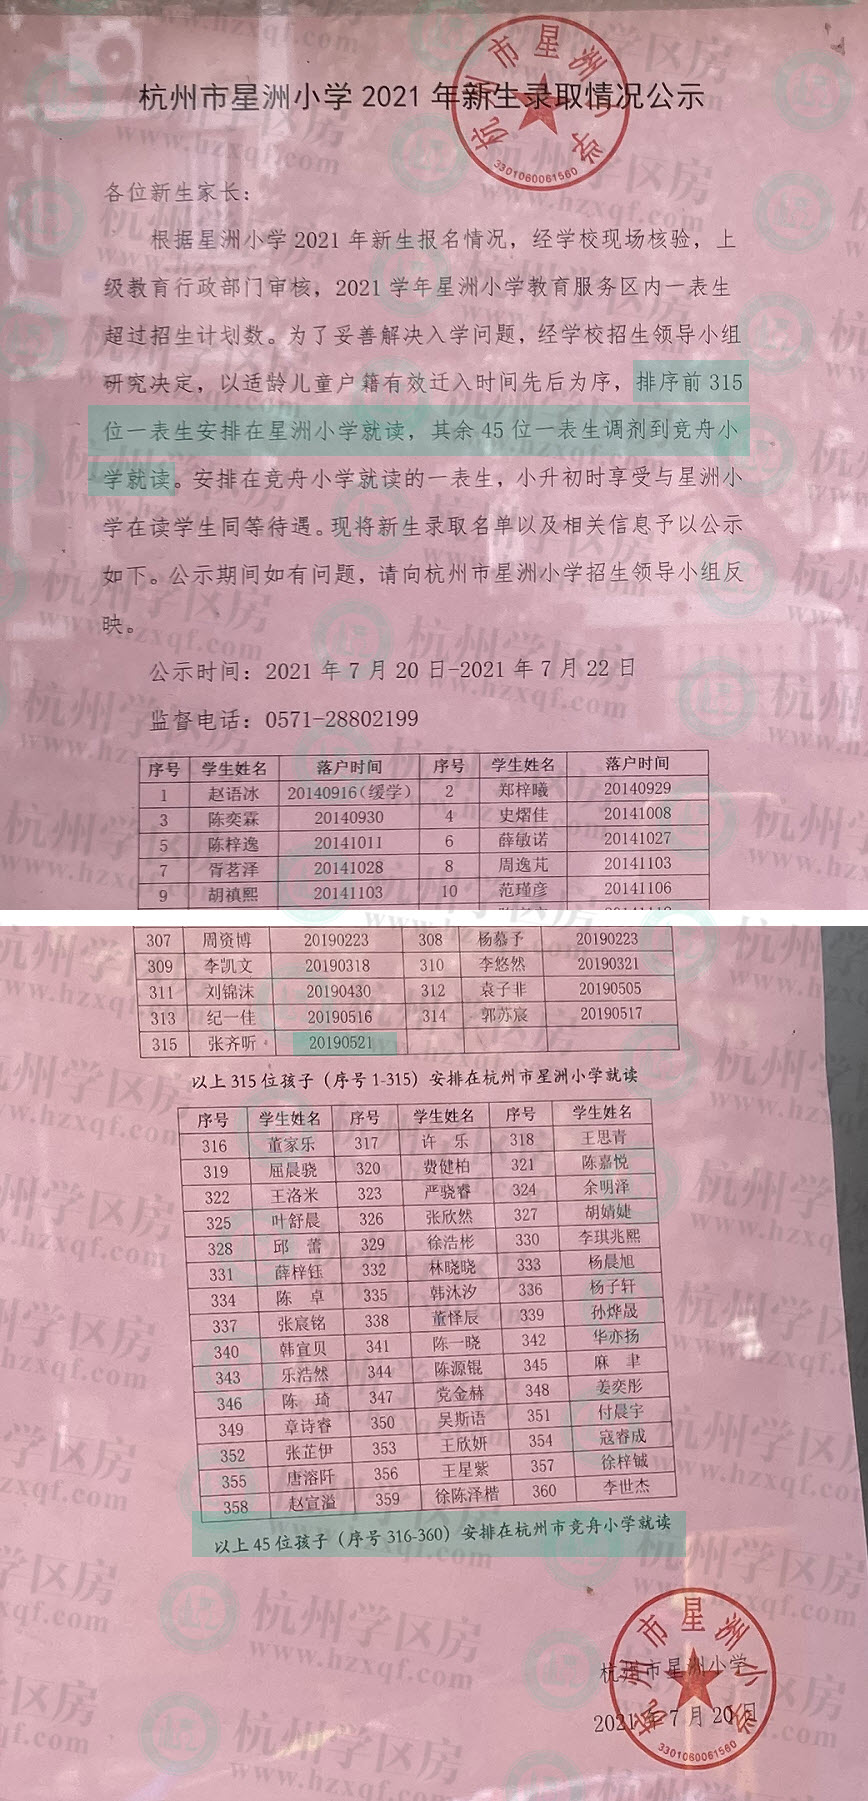 杭州市星洲小学 2021 年新生录取情况公示
杭州市星洲小学
3301060061560
各位新生家长：
根据星洲小学 2021 年新生报名情况，经学校现场核验，上
级教育行政部门审核，2021 学年星洲小学教育服务区内一表生
超过招生计划数。为了妥善解决入学问题，经学校招生领导小组
研究决定，以适龄儿童户籍有效迁入时间先后为序，排序前 315
位一表生安排在星洲小学就读，其余 45 位一表生调剂到竞舟小
学就读。安排在竞舟小学就读的一表生，小升初时享受与星洲小
学在读学生同等待遇。现将新生录取名单以及相关信息予以公示
如下。公示期间如有问题，请向杭州市星洲小学招生领导小组反
映。
公示时间：2021 年 7 月 20 日-2021 年 7 月 22 日
监督电话：0571-28802199
序号 学生姓名 落户时间 序号 学生姓名 落户时间
1 赵语冰 20140916（缓学） 2 郑梓曦 20140929
3 陈奕霖 20140930 4 史熠佳 20141008
5 陈梓逸 20141011 6 薛敏诺 20141027
7 胥茗泽 20141028 8 周逸芃 20141103
9 胡禛熙 20141103 10 范瑾彦 20141106
307 周资博 20190223 308 杨慕予 20190223
309 李凯文 20190318 310 李悠然 20190321
311 刘锦沫 20190430 312 袁子非 20190505
313 纪一佳 20190516 314 郭苏宸 20190517
315 张齐昕 20190521
以上 315 位孩子（序号 1-315）安排在杭州市星洲小学就读
序号 学生姓名 序号 学生姓名 序号 学生姓名
316 董家乐 317 许 乐 318 王思青
319 屈晨骁 320 费健柏 321 陈嘉悦
322 王洛米 323 严骁睿 324 余明泽
325 叶舒晨 326 张欣然 327 胡婧婕
328 邱 蕾 329 徐浩彬 330 李琪兆熙
331 薛梓钰 332 林晓晓 333 杨晨旭
334 陈 卓 335 韩沐汐 336 杨子轩
337 张宸铭 338 董怿辰 339 孙烨晟
340 韩宜贝 341 陈一晓 342 华亦扬
343 乐浩然 344 陈源锟 345 麻 聿
346 陈 琦 347 党金赫 348 姜奕彤
349 章诗睿 350 吴斯语 351 付晨宇
352 张芷伊 353 王欣妍 354 寇睿成
355 唐溶阡 356 王星紫 357 徐梓铖
358 赵宣溢 359 徐陈泽楷 360 李世杰
以上 45 位孩子（序号 316-360）安排在杭州市竞舟小学就读
杭州市星洲小学
2021 年 7 月 20 日
杭州市星洲小学
3301060061560
杭州学区房
www.hzxqf.com